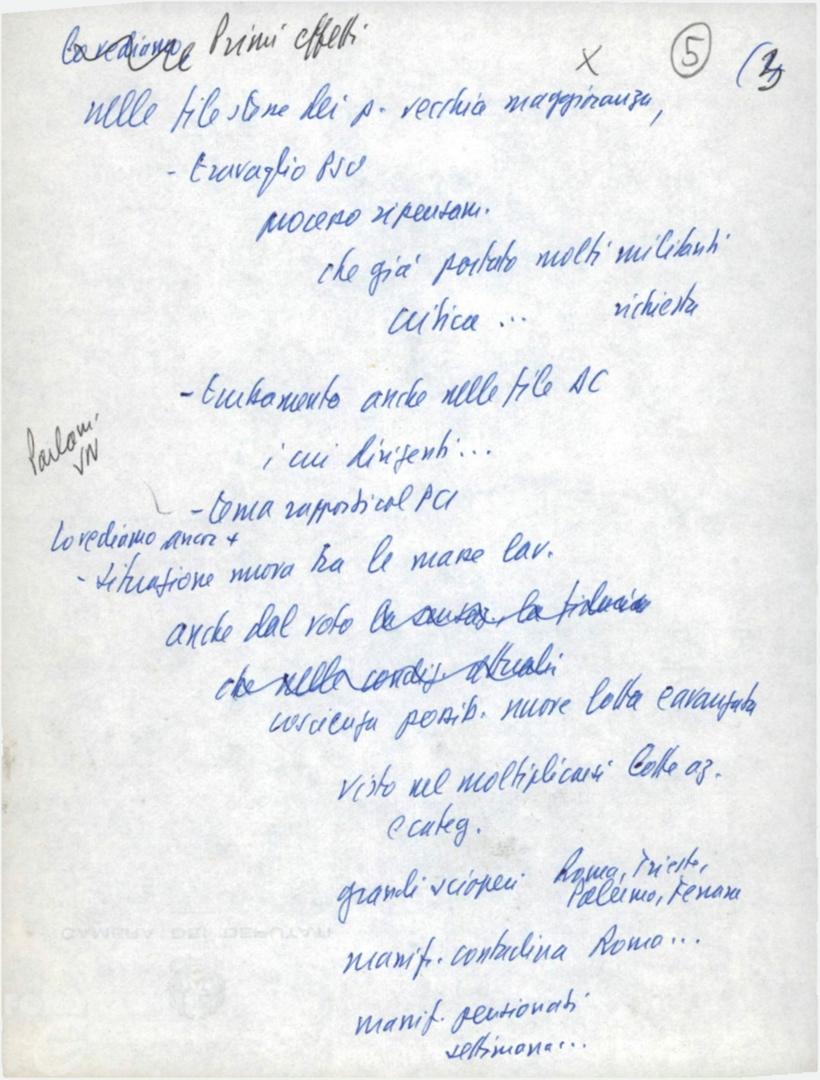 Lo vediamo Primi effetti
x 5 (3
nelle file stesse dei p. vecchia maggioranza,
- travaglio PSU
processo ripensam.
che già portato molti militanti
critica ... richiesta
- turbamento anche nelle file DC
i cui dirigenti...
Parlam.
VN
- tema rapporti col PCI
Lo vediamo ancor +
- situazione nuova tra le masse lav.
anche dal voto la la fiducia
che nelle condiz. attuali
coscienza possib. nuove lotta e avanzata
visto nel moltiplicarsi lotte az.
e categ.
grandi scioperi Roma, Trieste,
Palermo, Ferrara
manif. contadina Roma...
manif. pensionati
settimana...
CAMERA DEI DEPUTATI